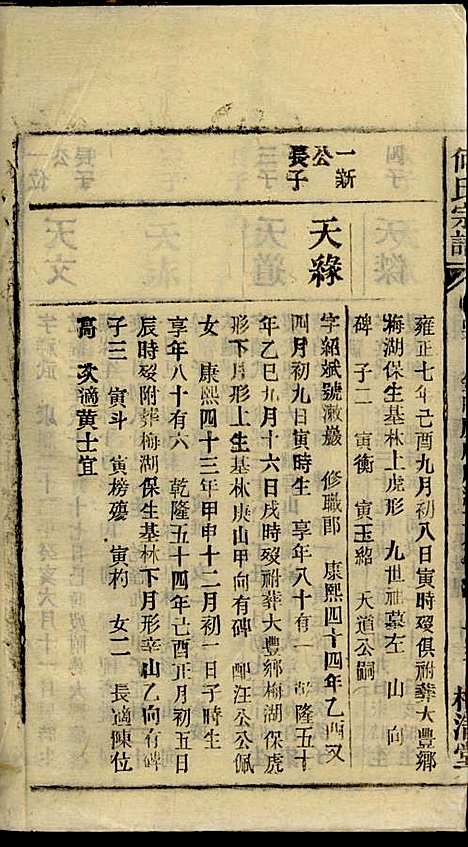 雍正七年己酉九月初八日寅時歿俱祔葬大豐鄉
梅湖保生基林上虎形 九世祖墓左 山 向
碑 子二 寅衡 寅玉紹 天道公嗣
一新
公
長子
天緣
字紹斌號漱巖 修職郎 康熙四十四年乙酉又
四月初九日寅時生 享年八十有一 乾隆五十
年乙巳九月十六日戌時歿祔葬大豐鄉梅湖保虎
形下月形上生基林庚山甲向有碑 配汪公公佩
女 康熙四十三年甲申十二月初一日子時生
享年八十有六 乾隆五十四年己酉正月初五日
辰時歿附葬梅湖保生基林下月形辛山乙向有碑
子三 寅斗 寅榜殤 寅杓 女二 長適陳位
高 次滴黃士宜